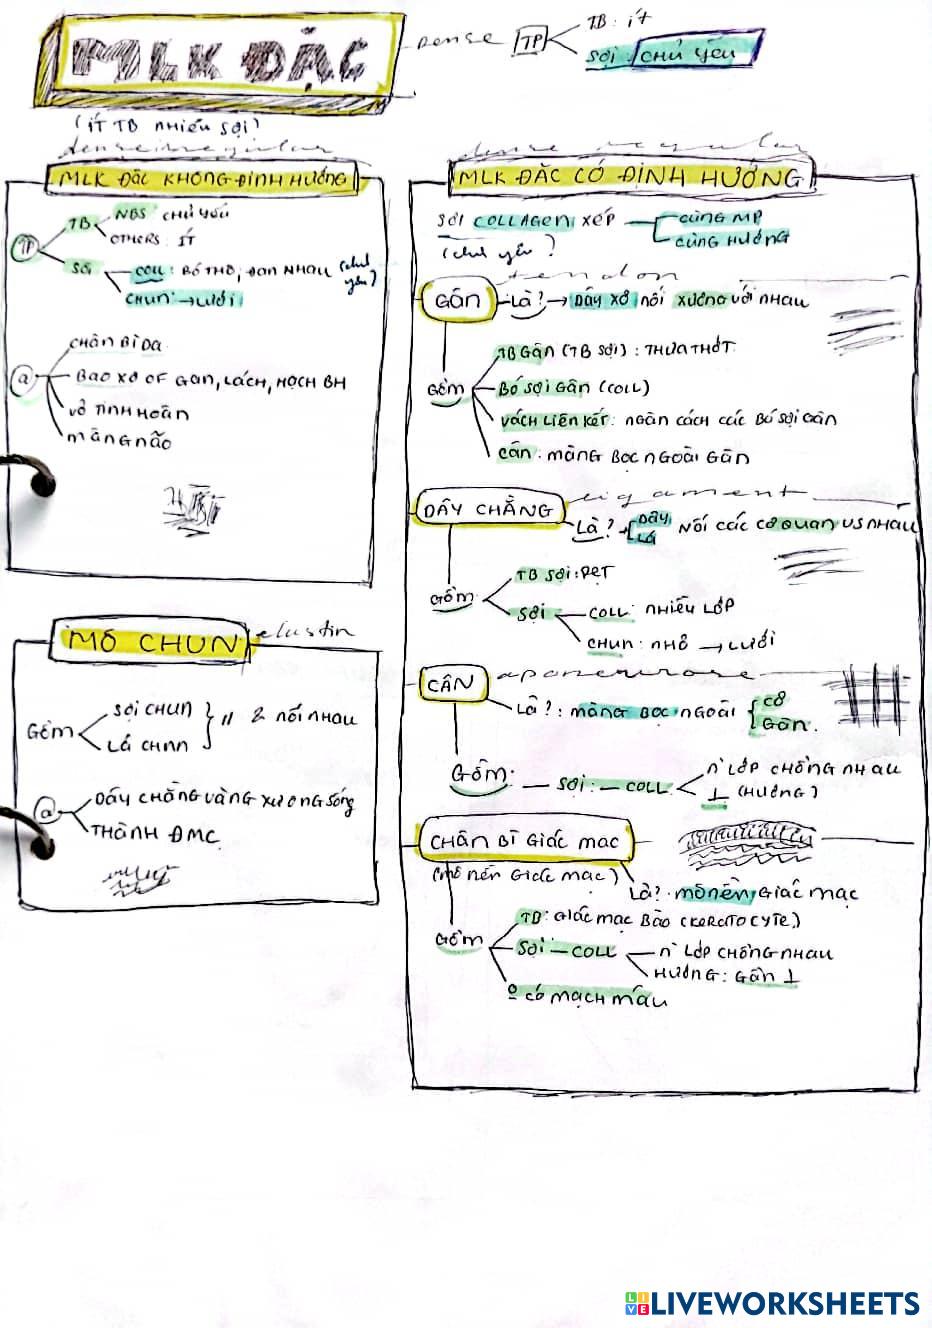 MLK ĐẶC
dense
TP
TB: ít
Sợi: CHỦ YẾU
(ÍT TB NHIỀU SỢI)
dense irregular
MLK ĐẶC KHÔNG ĐỊNH HƯỚNG
TP
TB
NBS CHỦ YẾU
OTHERS: ÍT
SỢI
COLL: BÓ THÔ, ĐAN NHAU (chủ yếu)
CHUN → LƯỚI
a
CHÂN BÌ DA
BAO XƠ OF GAN, LÁCH, HẠCH BH
VỎ TINH HOÀN
MÀNG NÃO
MÔ CHUN
elastin
GỒM
SỢI CHUN
LÁ CHUN
// & NỐI NHAU
a
DÂY CHẰNG VÀNG XƯƠNG SỐNG
THÀNH ĐMC
dense regular
MLK ĐẶC CÓ ĐỊNH HƯỚNG
SỢI COLLAGEN XẾP
(chủ yếu)
CÙNG MP
CÙNG HƯỚNG
?
tendon
GÂN
LÀ? → DÂY XƠ NỐI XƯƠNG VỚI NHAU
GỒM
TB GÂN (TB SỢI): THƯA THỚT
BÓ SỢI GÂN (COLL)
VÁCH LIÊN KẾT: NGĂN CÁCH CÁC BÓ SỢI GÂN
CÂN: MÀNG BỌC NGOÀI GÂN
ligament
DÂY CHẰNG
LÀ?
DÂY
LÁ
NỐI CÁC CƠ QUAN VS NHAU
GỒM
TB SỢI: DẸT
SỢI
COLL: NHIỀU LỚP
CHUN: NHỎ → LƯỚI
aponeurose
CÂN
LÀ?: MÀNG BỌC NGOÀI
CƠ
GÂN.
GỒM:
SỢI: — COLL
n` LỚP CHỒNG NHAU
⊥ (HƯỚNG)
CHÂN BÌ GIÁC MẠC
(MÔ NỀN GIÁC MẠC)
LÀ? MÔ NỀN GIÁC MẠC
GỒM
TB: GIÁC MẠC BÀO (KERATOCYTE)
SỢI — COLL
n` LỚP CHỒNG NHAU
HƯỚNG: GẦN ⊥
º CÓ MẠCH MÁU
LIVEWORKSHEETS